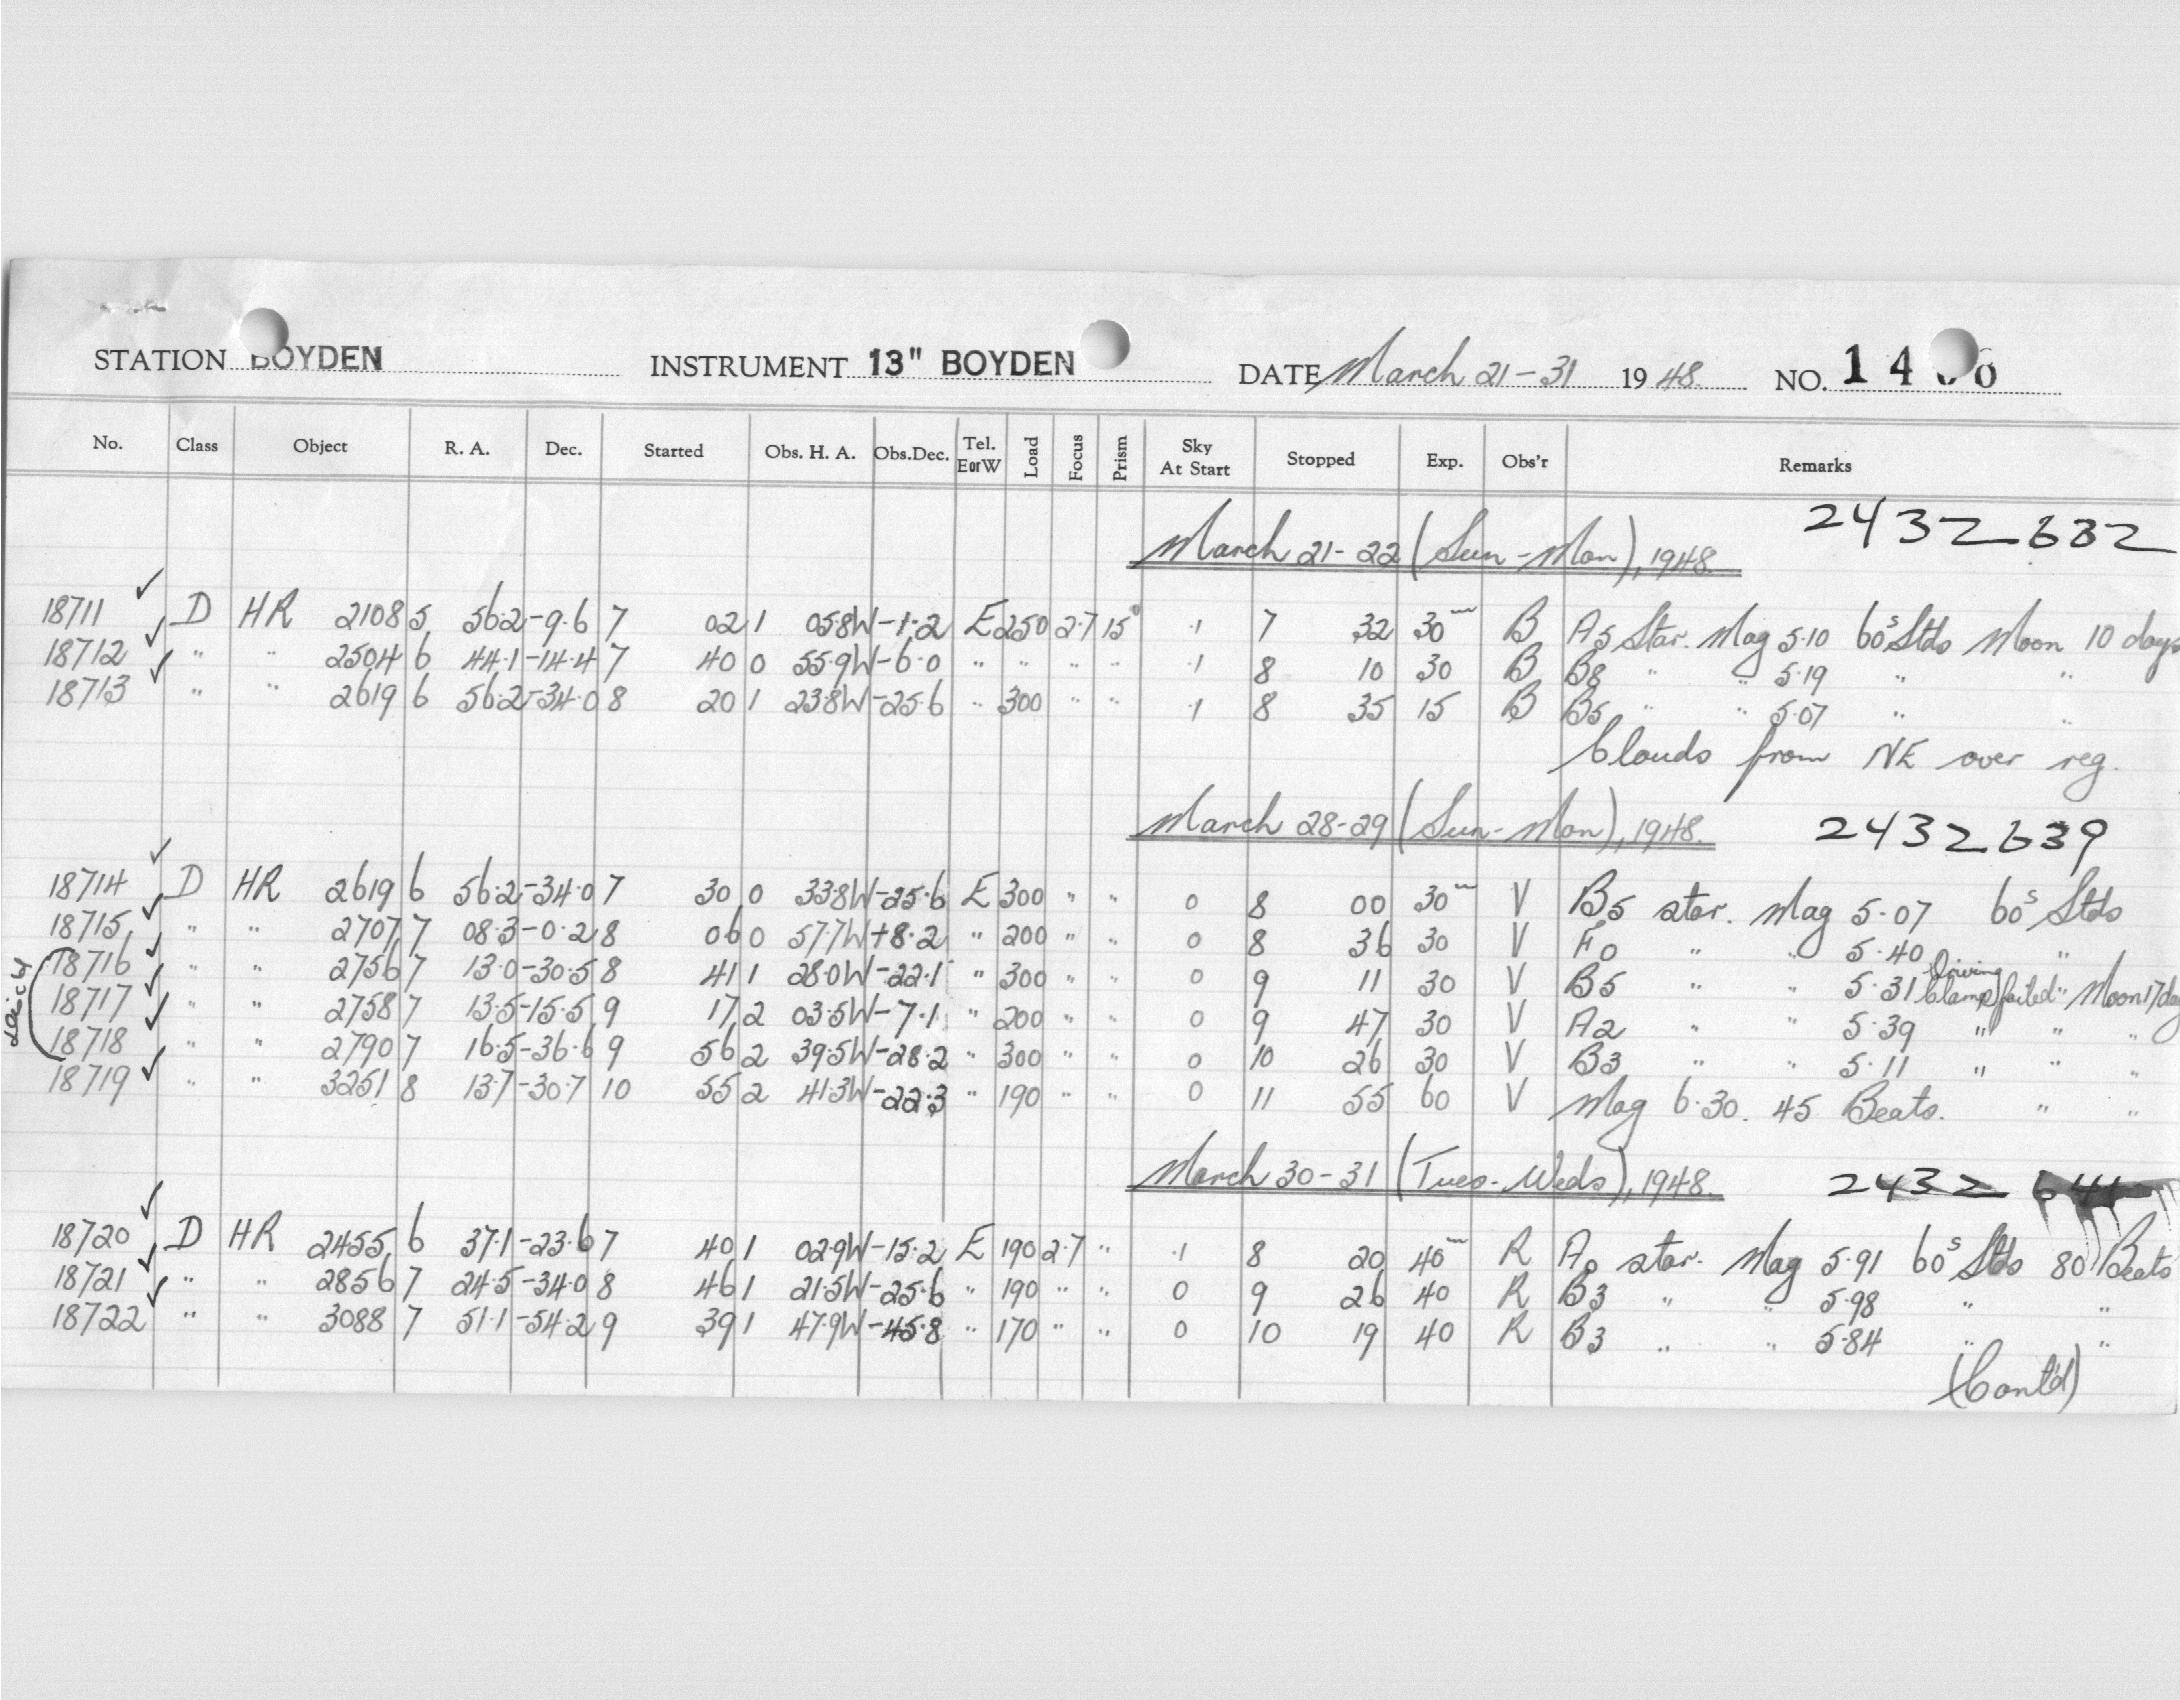 STATION BOYDEN INSTRUMENT 13" BOYDEN DATE March 21-31 1948. NO. 14 6
No. Class Object R. A. Dec. Started Obs. H. A. Obs.Dec. Tel. EorW Load Focus Prism Sky At Start Stopped Exp. Obs'r Remarks
March 21-22 (Sun-Mon), 1948. 2432632
18711 ✓ D HR 2108 5 56.2 -9.6 7 02 1 05.8W -1.2 E 250 2.7 15° .1 7 32 30m B A5 Star. Mag 5.10 60s Stds Moon 10 days
18712 ✓ " " 2504 6 44.1 -14.4 7 40 0 55.9W -6.0 " " " " .1 8 10 30 B B8 " " 5.19 " "
18713 ✓ " " 2619 6 56.2 -34.0 8 20 1 23.8W -25.6 " 300 " " .1 8 35 15 B B5 " " 5.07 " "
Clouds from NE over reg.
March 28-29 (Sun-Mon), 1948. 2432639
18714 ✓ D HR 2619 6 56.2 -34.0 7 30 0 33.8W -25.6 E 300 " " 0 8 00 30m V B5 star. Mag 5.07 60s Stds
18715 ✓ " " 2707 7 08.3 -0.2 8 06 0 57.7W +8.2 " 200 " " 0 8 36 30 V F0 " " 5.40 "
18716 ✓ " " 2756 7 13.0 -30.5 8 41 1 28.0W -22.1 " 300 " " 0 9 11 30 V B5 " " 5.31 Driving Clamp failed " Moon 17 da
18717 ✓ " " 2758 7 13.5 -15.5 9 17 2 03.5W -7.1 " 200 " " 0 9 47 30 V A2 " " 5.39 " " "
18718 ✓ " " 2790 7 16.5 -36.6 9 56 2 39.5W -28.2 " 300 " " 0 10 26 30 V B3 " " 5.11 " " "
18719 ✓ " " 3251 8 13.7 -30.7 10 55 2 41.3W -22.3 " 190 " " 0 11 55 60 V Mag 6.30. 45 Beats. " "
March 30-31 (Tues-Weds), 1948. 2432 641
18720 ✓ D HR 2455 6 37.1 -23.6 7 40 1 02.9W -15.2 E 190 2.7 " .1 8 20 40m R A0 star. Mag 5.91 60s Stds 80 Beats
18721 ✓ " " 2856 7 24.5 -34.0 8 46 1 21.5W -25.6 " 190 " " 0 9 26 40 R B3 " " 5.98 " "
18722 ✓ " " 3088 7 51.1 -54.2 9 39 1 47.9W -45.8 " 170 " " 0 10 19 40 R B3 " " 5.84 " "
(Cont'd)